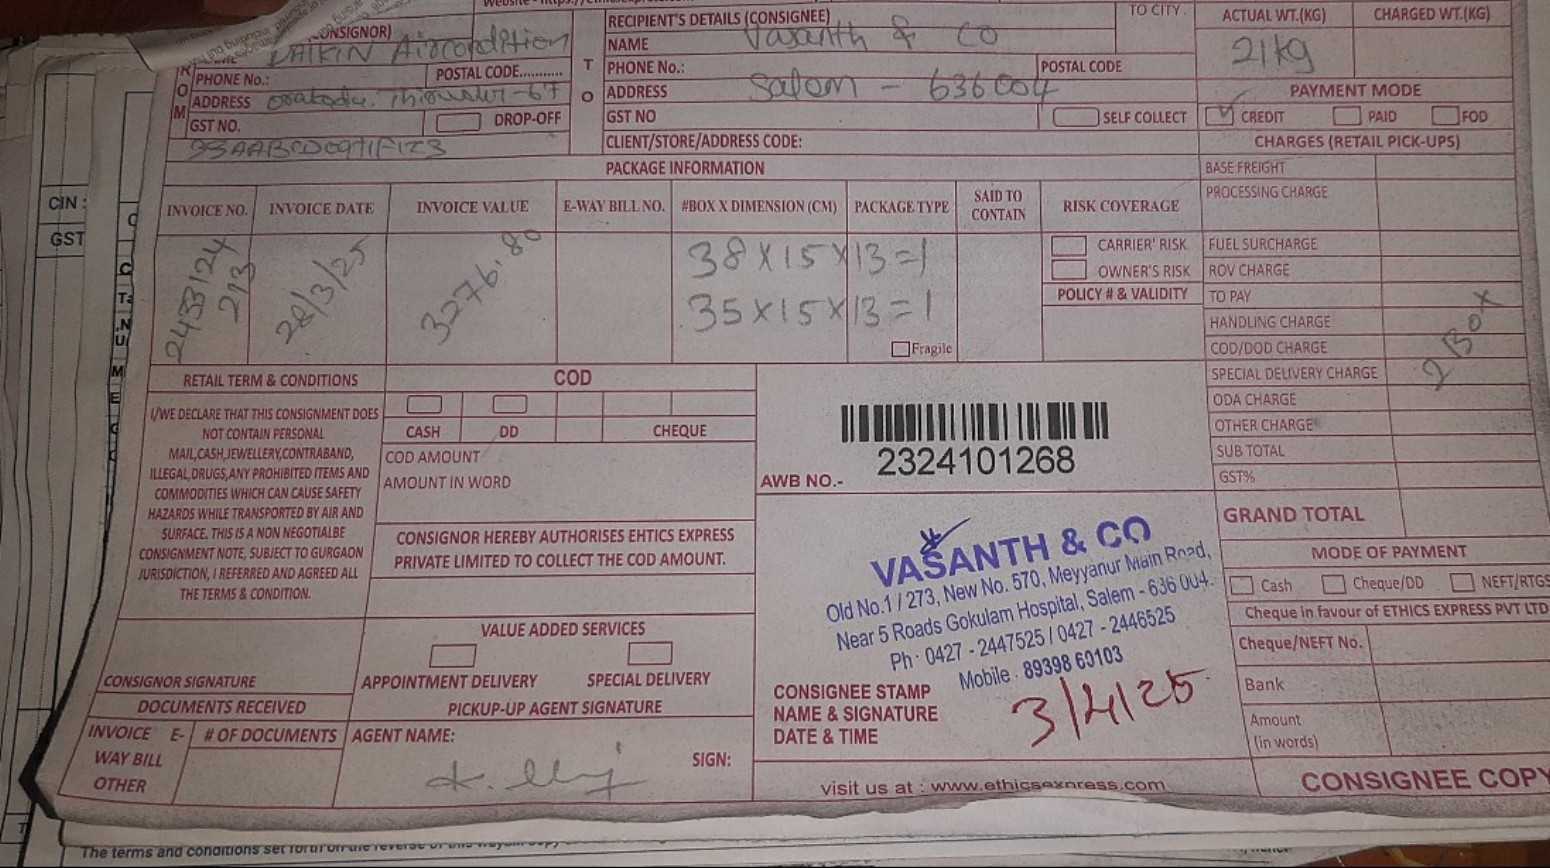 (CONSIGNOR)
DAIKIN Aircondition
PHONE No.:
POSTAL CODE...........
ADDRESS
GST NO.
DROP-OFF
ROM
TO
RECIPIENT'S DETAILS (CONSIGNEE)
NAME Vasanth & CO
PHONE No.:
POSTAL CODE
ADDRESS Salem - 636004
GST NO
SELF COLLECT
CLIENT/STORE/ADDRESS CODE:
TO CITY
ACTUAL WT.(KG)
CHARGED WT.(KG)
21kg
PAYMENT MODE
CREDIT PAID FOD
CHARGES (RETAIL PICK-UPS)
PACKAGE INFORMATION
INVOICE NO.
INVOICE DATE
INVOICE VALUE
E-WAY BILL NO.
#BOX X DIMENSION (CM)
PACKAGE TYPE
SAID TO CONTAIN
RISK COVERAGE
28/3/25
3276.80
38 X 15 X 13 = 1
35 X 15 X 13 = 1
Fragile
CARRIER' RISK
OWNER'S RISK
POLICY # & VALIDITY
BASE FREIGHT
PROCESSING CHARGE
FUEL SURCHARGE
ROV CHARGE
TO PAY
HANDLING CHARGE
COD/DOD CHARGE
SPECIAL DELIVERY CHARGE
ODA CHARGE
OTHER CHARGE
SUB TOTAL
GST%
GRAND TOTAL
2 Box
RETAIL TERM & CONDITIONS
I/WE DECLARE THAT THIS CONSIGNMENT DOES
NOT CONTAIN PERSONAL
MAIL,CASH,JEWELLERY,CONTRABAND,
ILLEGAL,DRUGS,ANY PROHIBITED ITEMS AND
COMMODITIES WHICH CAN CAUSE SAFETY
HAZARDS WHILE TRANSPORTED BY AIR AND
SURFACE. THIS IS A NON NEGOTIALBE
CONSIGNMENT NOTE, SUBJECT TO GURGAON
JURISDICTION, I REFERRED AND AGREED ALL
THE TERMS & CONDITION.
COD
CASH DD CHEQUE
COD AMOUNT
AMOUNT IN WORD
CONSIGNOR HEREBY AUTHORISES EHTICS EXPRESS
PRIVATE LIMITED TO COLLECT THE COD AMOUNT.
AWB NO.- 2324101268
VASANTH & CO
Old No.1 / 273, New No. 570, Meyyanur Main Road,
Near 5 Roads Gokulam Hospital, Salem - 636 004.
Ph : 0427 - 2447525 / 0427 - 2446525
Mobile : 89398 60103
3/4/25
CONSIGNEE STAMP
NAME & SIGNATURE
DATE & TIME
VALUE ADDED SERVICES
APPOINTMENT DELIVERY
SPECIAL DELIVERY
CONSIGNOR SIGNATURE
DOCUMENTS RECEIVED
PICKUP-UP AGENT SIGNATURE
INVOICE E-
WAY BILL
OTHER
# OF DOCUMENTS
AGENT NAME:
SIGN:
MODE OF PAYMENT
Cash Cheque/DD NEFT/RTGS
Cheque in favour of ETHICS EXPRESS PVT LTD
Cheque/NEFT No.
Bank
Amount
(in words)
visit us at : www.ethicsexpress.com
CONSIGNEE COPY
CIN :
GST
The terms and conditions set forth on the reverse of this